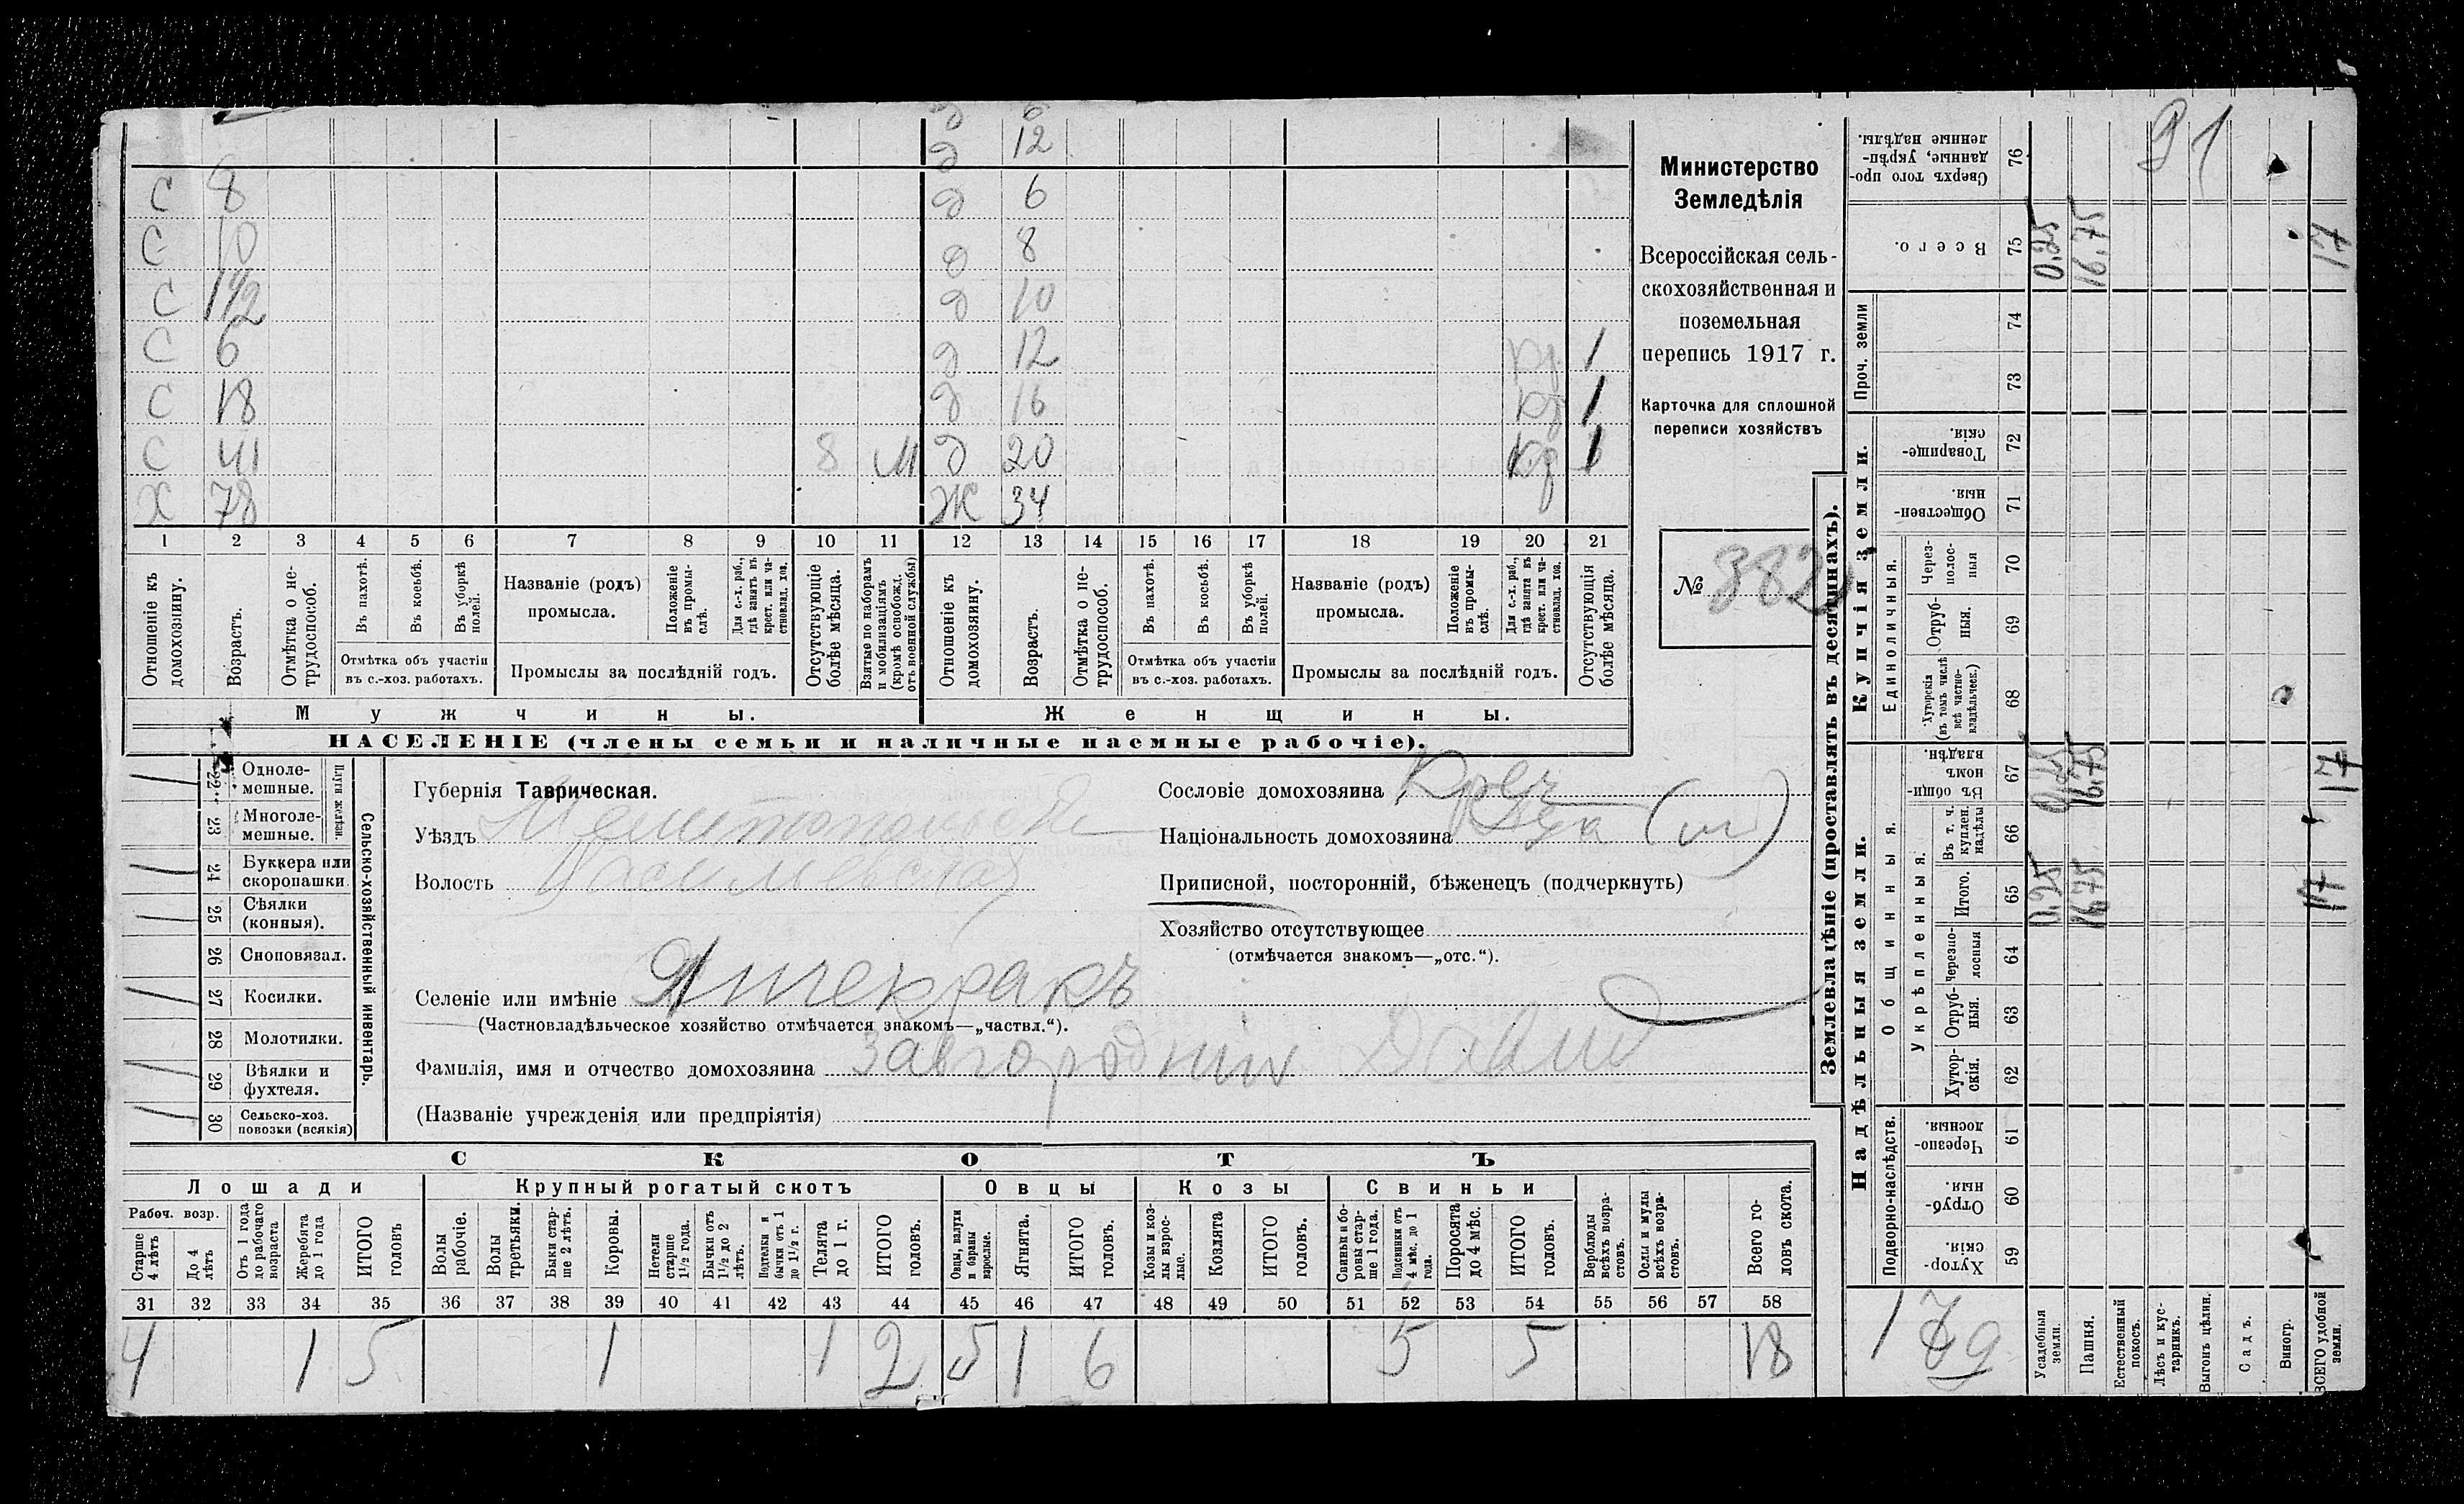 д 6
д 12
С 8 д 6
С 10 д 8
С 1½ д 10
С 6 д 12 Кр 1
С 18 д 16 Кр 1
С 41 8 М д 20 Кр 1
Х 78 Ж 34
1 2 3 4 5 6 7 8 9 10 11 12 13 14 15 16 17 18 19 20 21
Отношеніе къ домохозяину.
Возрастъ.
Отмѣтка о не-трудоспособ.
Въ пахотѣ.
Въ косьбѣ.
Въ уборкѣ полей.
Отмѣтка объ участіи
въ с.-хоз. работахъ.
Названіе (родъ)
промысла.
Положеніе въ промы-слѣ.
Для с.-х. раб., гдѣ занятъ въ крест. или ча-стновлад. хоз.
Промыслы за послѣдній годъ.
Отсутствующіе болѣе мѣсяца.
Взятые по наборамъ и мобилизаціямъ (кромѣ освобожд. отъ военной службы)
Отношеніе къ домохозяину.
Возрастъ.
Отмѣтка о не-трудоспособ.
Въ пахотѣ.
Въ косьбѣ.
Въ уборкѣ полей.
Отмѣтка объ участіи
въ с.-хоз. работахъ.
Названіе (родъ)
промысла.
Положеніе въ промы-слѣ.
Для с.-х. раб., гдѣ занятъ въ крест. или ча-стновлад. хоз.
Промыслы за послѣдній годъ.
Отсутствующія болѣе мѣсяца.
Мужчины. Женщины.
НАСЕЛЕНІЕ (члены семьи и наличные наемные рабочіе).
Министерство
Земледѣлія
Всероссійская сель-
скохозяйственная и
поземельная
перепись 1917 г.
Карточка для сплошной
переписи хозяйствъ
№ 382
Сельско-хозяйственный инвентарь.
Плуги желѣзн.
22 Одноле-мешные.
23 Многоле-мешные.
24 Буккера или скоропашки
25 Сѣялки (конныя).
26 Сноповязал.
27 Косилки.
28 Молотилки.
29 Вѣялки и фухтеля.
30 Сельско-хоз. повозки (всякія)
Губернія Таврическая.
Уѣздъ Мелитопольскій
Волость Васильевская
Селеніе или имѣніе Янчекракъ
(Частновладѣльческое хозяйство отмѣчается знакомъ—„частвл.“).
Фамилія, имя и отчество домохозяина Завгородній Давид
(Названіе учрежденія или предпріятія)
Сословіе домохозяина Крес
Національность домохозяина
Приписной, посторонній, бѣженецъ (подчеркнуть)
Хозяйство отсутствующее
(отмѣчается знакомъ—„отс.“).
СКОТЪ
Лошади Крупный рогатый скотъ Овцы Козы Свиньи
Рабоч. возр.
Старше 4 лѣтъ
До 4 лѣтъ
Отъ 1 года до рабочаго возраста
Жеребята до 1 года
ИТОГО головъ
Волы рабочіе.
Волы третьяки.
Быки стар-ше 2 лѣтъ.
Коровы.
Нетели старше 1½ года.
Бычки отъ 1½ до 2 лѣтъ.
Подтелки и бычки отъ 1 до 1½ г.
Телята до 1 г.
ИТОГО головъ.
Овцы, валухи и бараны взрослые.
Ягнята.
ИТОГО головъ.
Козы и коз-лы взрос-лые.
Козлята
ИТОГО головъ.
Свиньи и бо-ровы стар-ше 1 года.
Подсвинки отъ 4 мѣс. до 1 года.
Поросята до 4 мѣс.
ИТОГО головъ.
Верблюды всѣхъ возра-стовъ.
Ослы и мулы всѣхъ возра-стовъ.
Всего го-ловъ скота.
31 32 33 34 35 36 37 38 39 40 41 42 43 44 45 46 47 48 49 50 51 52 53 54 55 56 57 58
4 1 5 1 1 2 5 1 6 5 5 18
Землевладѣніе (проставлять въ десятинахъ).
Надѣльныя земли. Купчія земли.
Подворно-наслѣдств.
Общинныя.
Укрѣпленныя.
Единоличныя.
Проч. земли
76 Сверхъ того про-данные, укрѣп-ленные надѣлы.
75 Всего. 0.25 16.75 17
74
73
72 Товарище-скія.
71 Обществен-ныя.
70 Через-полос-ныя
69 Отруб-ныя.
68 Хуторскія (въ томъ числѣ всѣ частно-владѣльческ.)
67 Въ общин-номъ владѣн. 0.25 16.75 17
66 Въ т. ч. куплен. надѣлы
65 Итого. 0.25 16.75 17
64 Черезпо-лосныя
63 Отруб-ныя.
62 Хутор-скія.
61 Черезпо-лосныя.
60 Отруб-ныя.
59 Хутор-скія.
Усадебныя земли.
Пашня.
Естественный покосъ.
Лѣсъ и кус-тарникъ.
Выгонъ цѣлин.
Садъ.
Виногр.
ВСЕГО удобной земли.
91